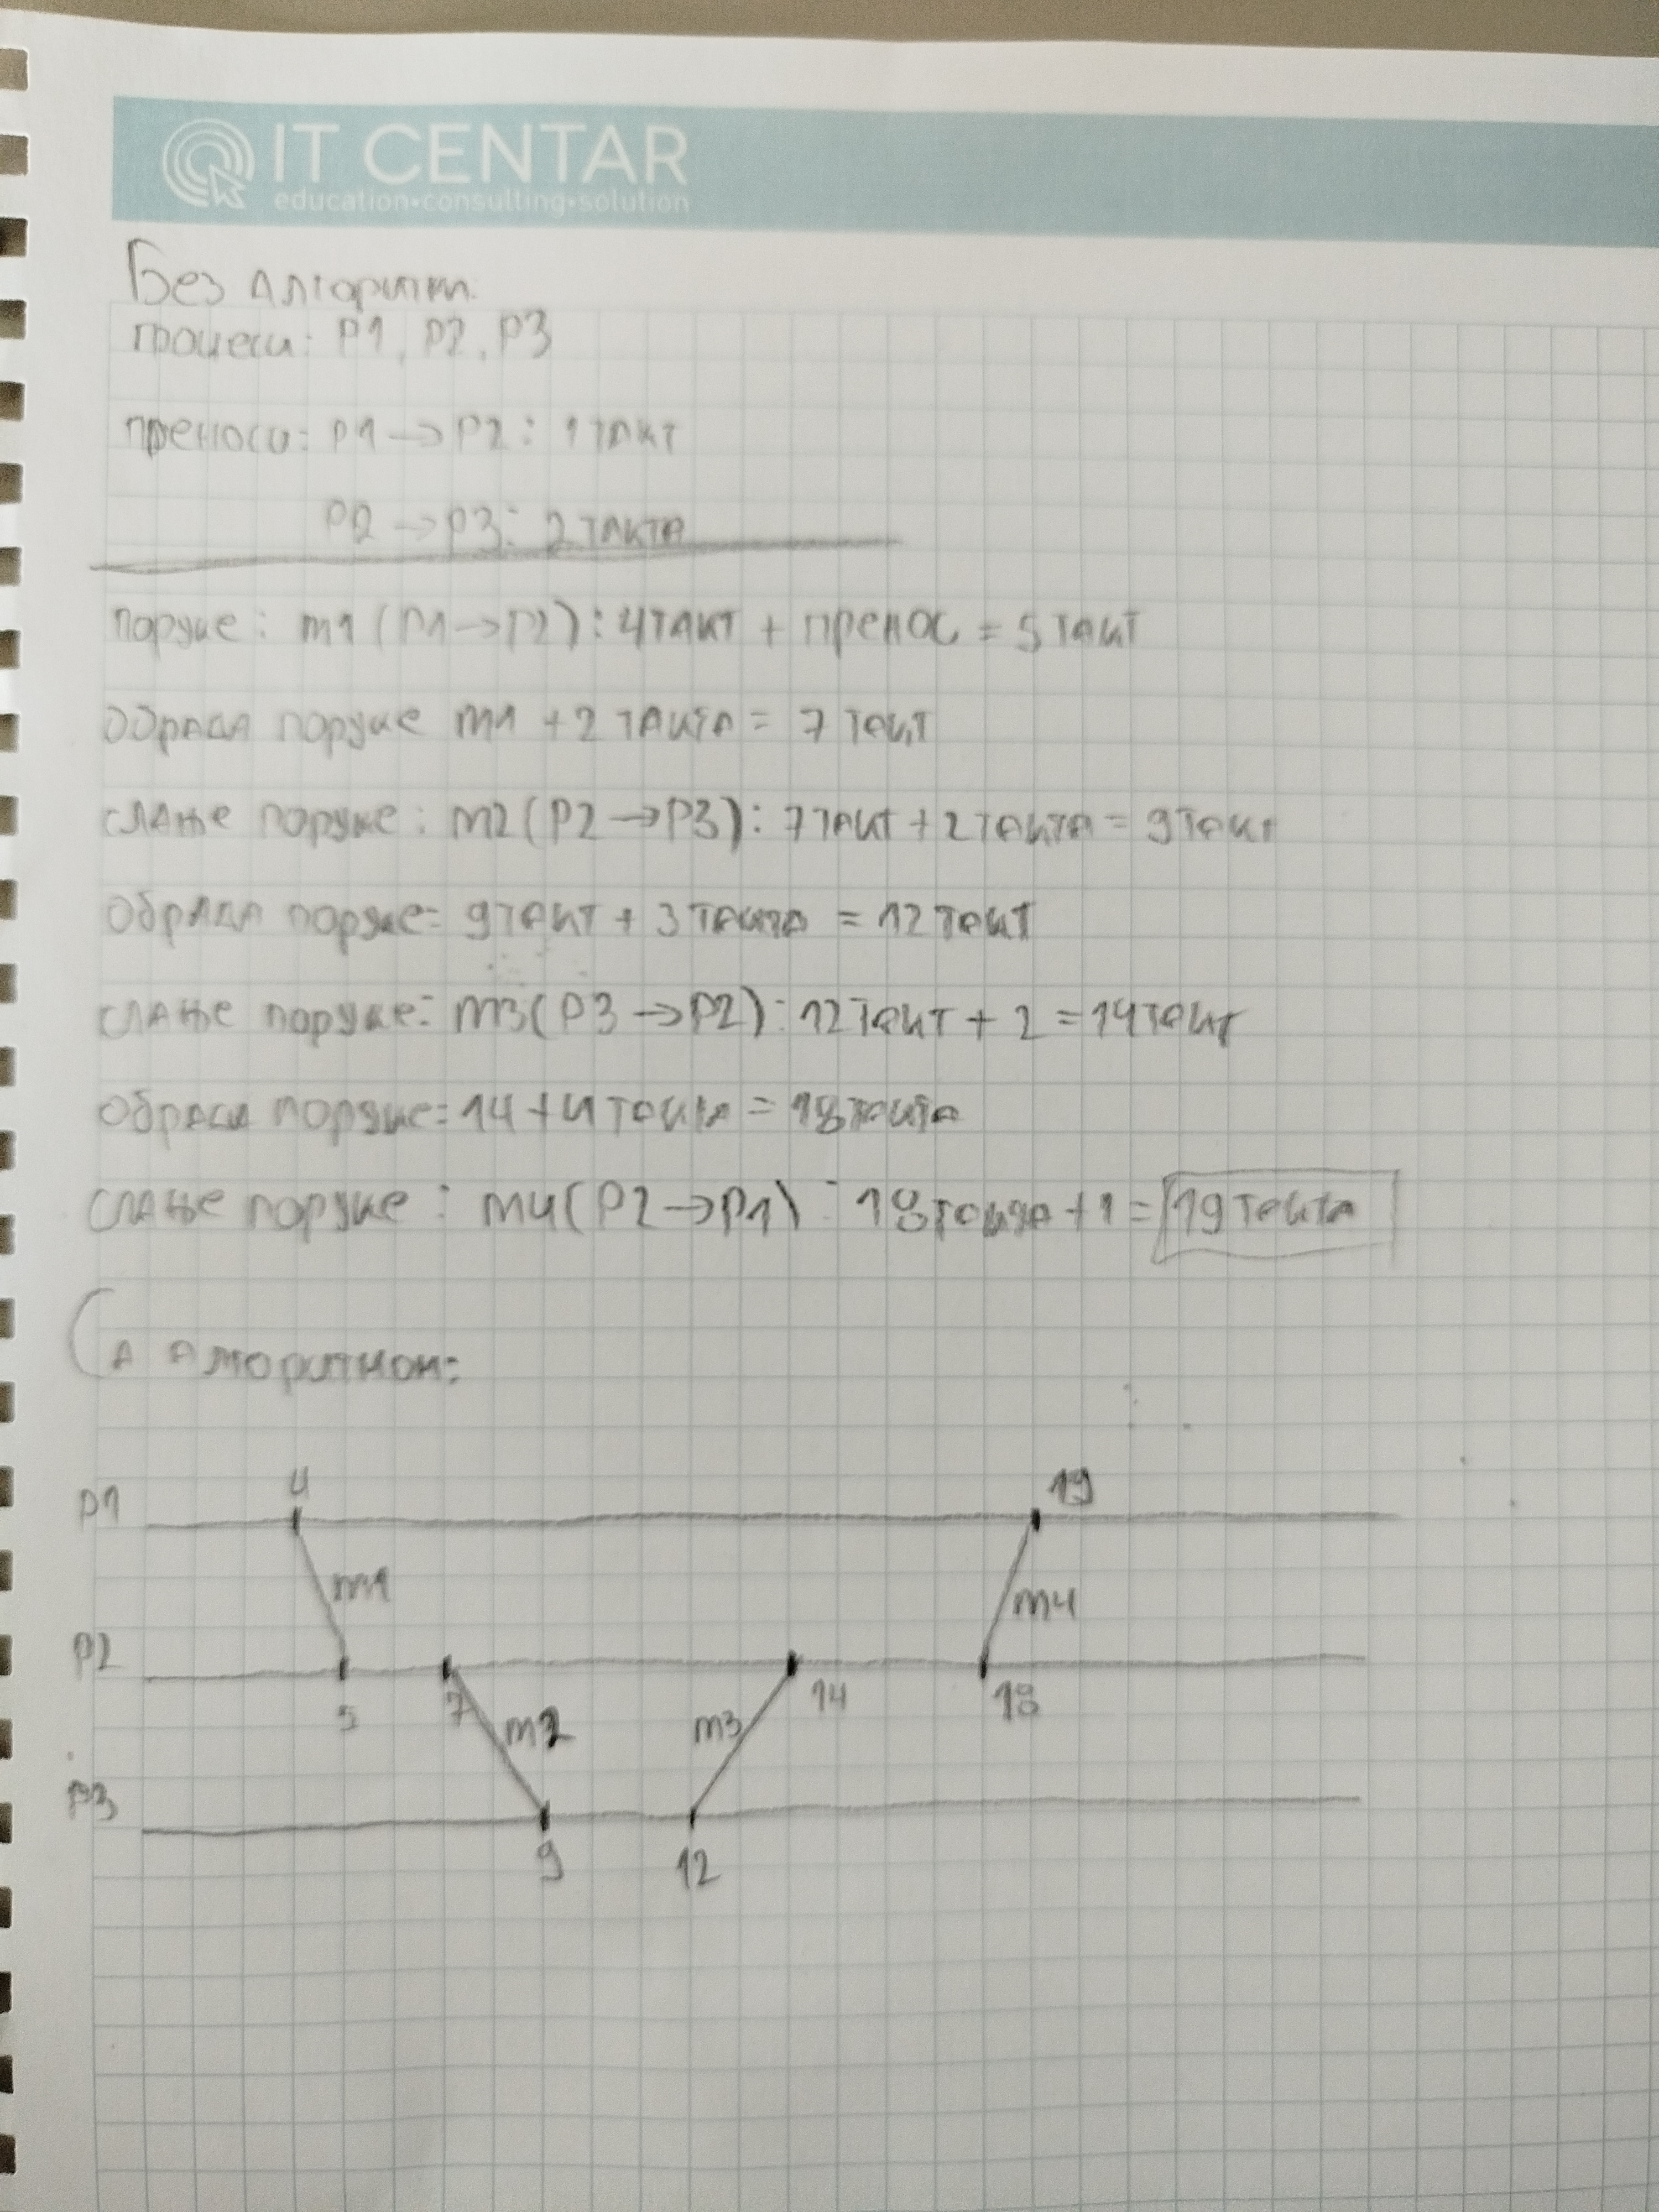 IT CENTAR
education•consulting•solution
Без алгоритм:
процеси: P1, P2, P3
преноси: P1 → P2: 1 такт
P2 → P3: 2 такта
поруке: m1 (P1 → P2): 4 такт + пренос = 5 такт
обрада поруке m1 + 2 такта = 7 такт
слање поруке: m2 (P2 → P3): 7 такт + 2 такта = 9 такт
обрада поруке: 9 такт + 3 такта = 12 такт
слање поруке: m3 (P3 → P2): 12 такт + 2 = 14 такт
обрада поруке: 14 + 4 такта = 18 такта
слање поруке: m4 (P2 → P1): 18 такта + 1 = 19 такта
Са алгоритмом:
4 19
P1
m1 m4
P2
5 7 m2 m3 14 18
P3
9 12